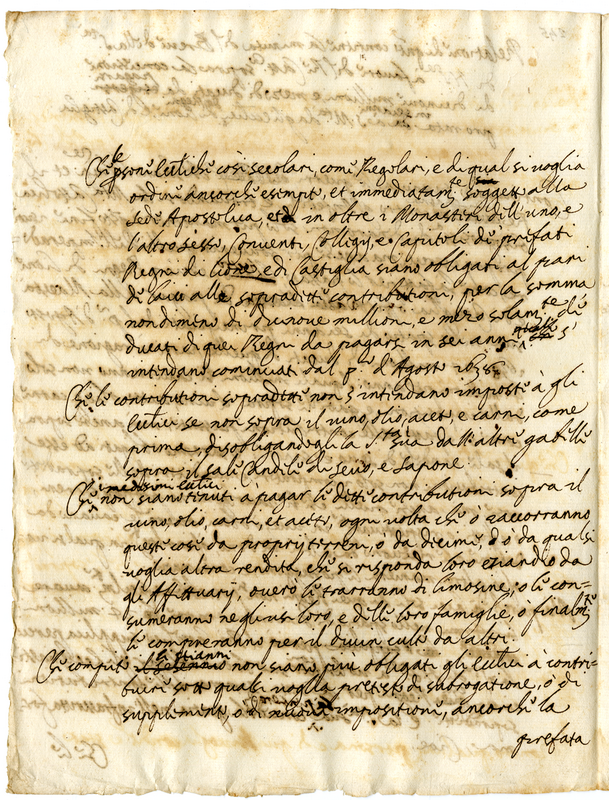 Che le psone Eccliche così secolari, come Regolari, e di qual si voglia
ordine ancorche esempte, et immediatam.te soggette alla
Sede Apostolica, et in oltre i Monasterij dell'uno, e
l'altro sesso, Conventi, Collegij, e Capitoli de prefati
Regni di Lione, e di Castiglia siano obligati al pari
de laici alle sopradette contributioni, per la somma
nondimeno di dicinove millioni, e mezo solam.te di
ducati di quei Regni da pagarsi in sei anni s'
intendano cominciati dal p.o d'Agosto 1638
Che le contributioni sopradette non s'intendano imposte à gli
Ecclici se non sopra il vino, olio, aceto, e carne, come
prima, disobligandogli la S.tà sua dall'altre gabelle
sopra il sale, Candele di sevo, e sapone.
Che i medesimi Ecclici non siano tenuti à pagar le dette contributioni sopra il
vino, olio, carne, et aceto, ogni volta che ò raccorranno
queste cose da proprij terreni, o da decime, ò da qual si
voglia altra rendita, che si risponda loro etiandio da
gli Affittuarij, overo le trarranno di limosine, o le con=
sumeranno negli usi loro, e delle loro famiglie, o finalm.te
le compreranno per il divin culto da altri.
Che compiti li sei anni il sessennio non siano più obligati gli Ecclici à contri=
buire sotto qualsivoglia pretesto di subrogatione, ò di
supplemento, o di nuova impositione, ancorche la
prefata